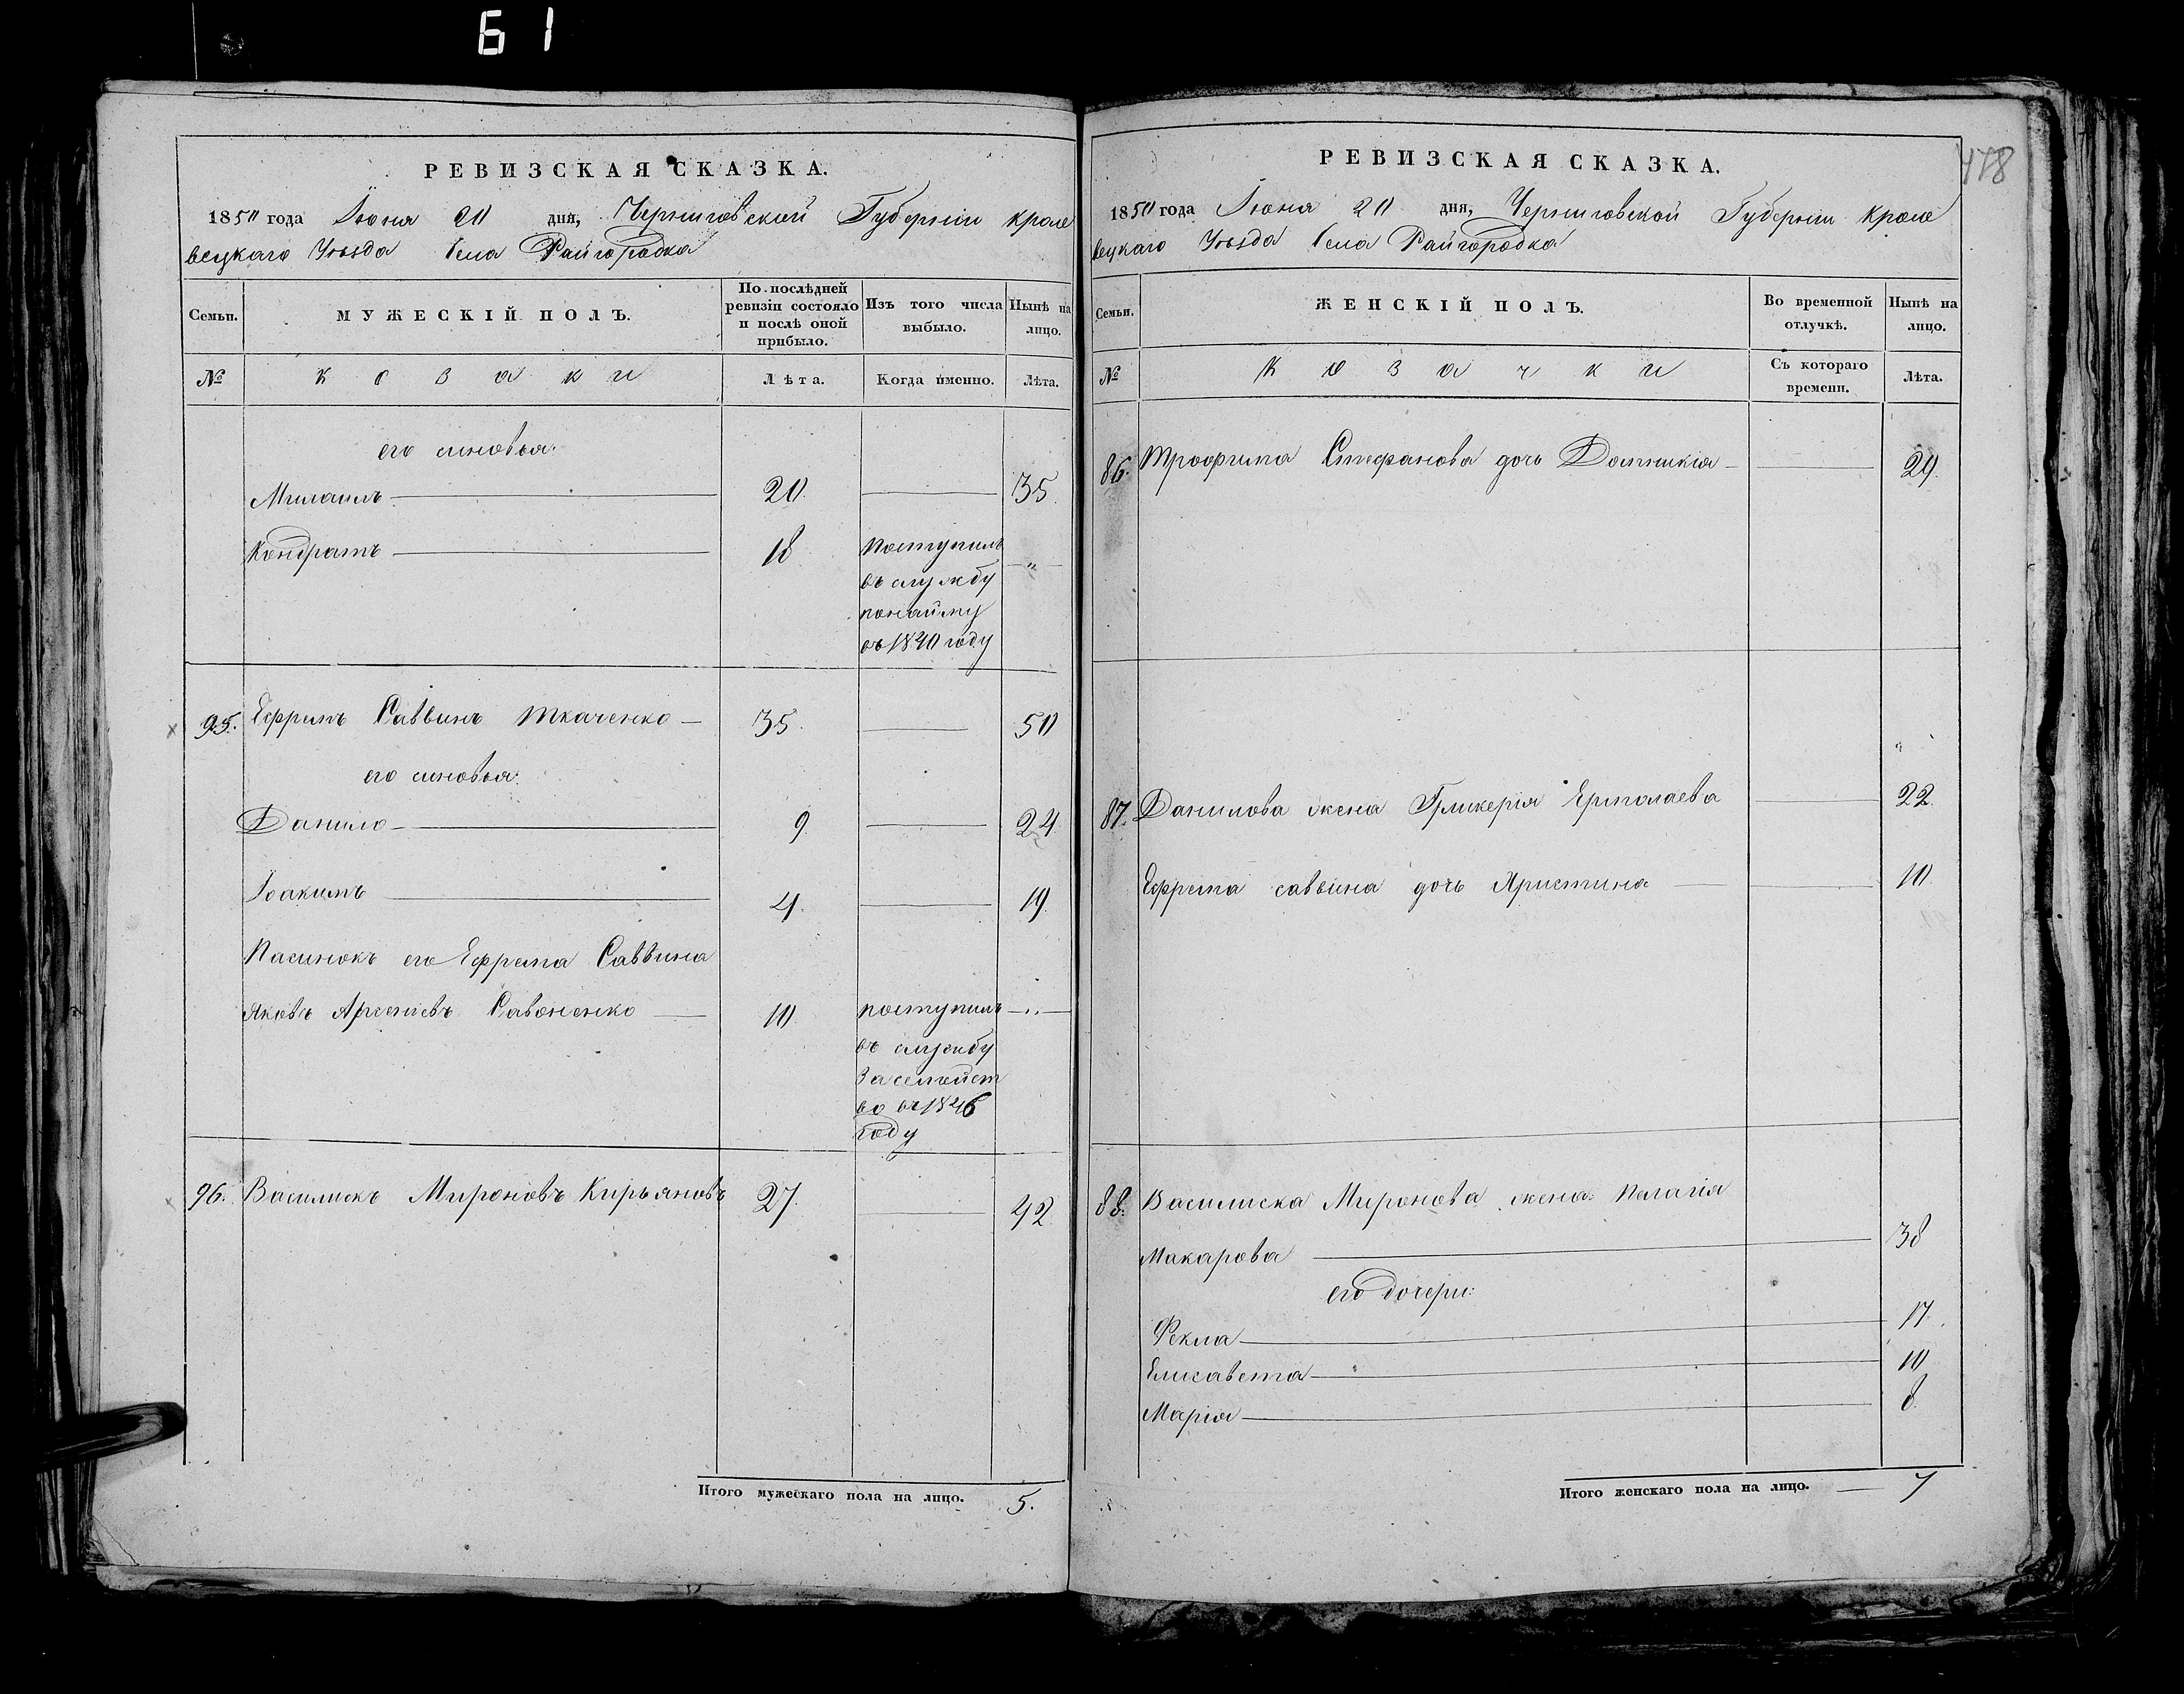 61
РЕВИЗСКАЯ СКАЗКА.
1850 года Іюня 20 дня, Черниговской Губерніи Кроле
вецкаго Уѣзда Села Райгородка
Семьи.
МУЖЕСКІЙ ПОЛЪ.
По послѣдней ревизіи состояло и послѣ оной прибыло.
Изъ того числа выбыло.
Нынѣ на лицо.
№
козаки
Лѣта.
Когда именно.
Лѣта.
его синовья:
Михаилъ 20. 35.
Кондратъ 18 Поступилъ „
въ службу
понайму
въ 1840 году
95. Ефримъ Саввинъ Ткаченко 35. 50
его синовья:
Данило 9 24
Іоакимъ 4. 19.
Пасинокъ его Ефрема Саввина
Яковъ Арсеніевъ Савоненко 10. поступилъ „
въ службу
за семейст
во въ 1846
году
96. Василискъ Мироновъ Кирьяновъ 27. 42
Итого мужескаго пола на лицо. 5.
478
РЕВИЗСКАЯ СКАЗКА.
1850 года Іюня 20 дня, Черниговской Губерніи Кроле
вецкаго Уѣзда Села Райгородка
Семьи.
ЖЕНСКІЙ ПОЛЪ.
Во временной отлучкѣ.
Нынѣ на лицо.
№
Козачки
Съ котораго времени.
Лѣта.
86. Трофима Стефанова дочь Домникія 29.
87. Данилова жена Гликерія Ермолаева 22
Ефрема саввина дочь Христина 10
88. Василиска Миронова жена Пелагія
Макарова 38
его дочери:
Фекла 17.
Елисавета 10
Марія 8.
Итого женскаго пола на лицо. 7